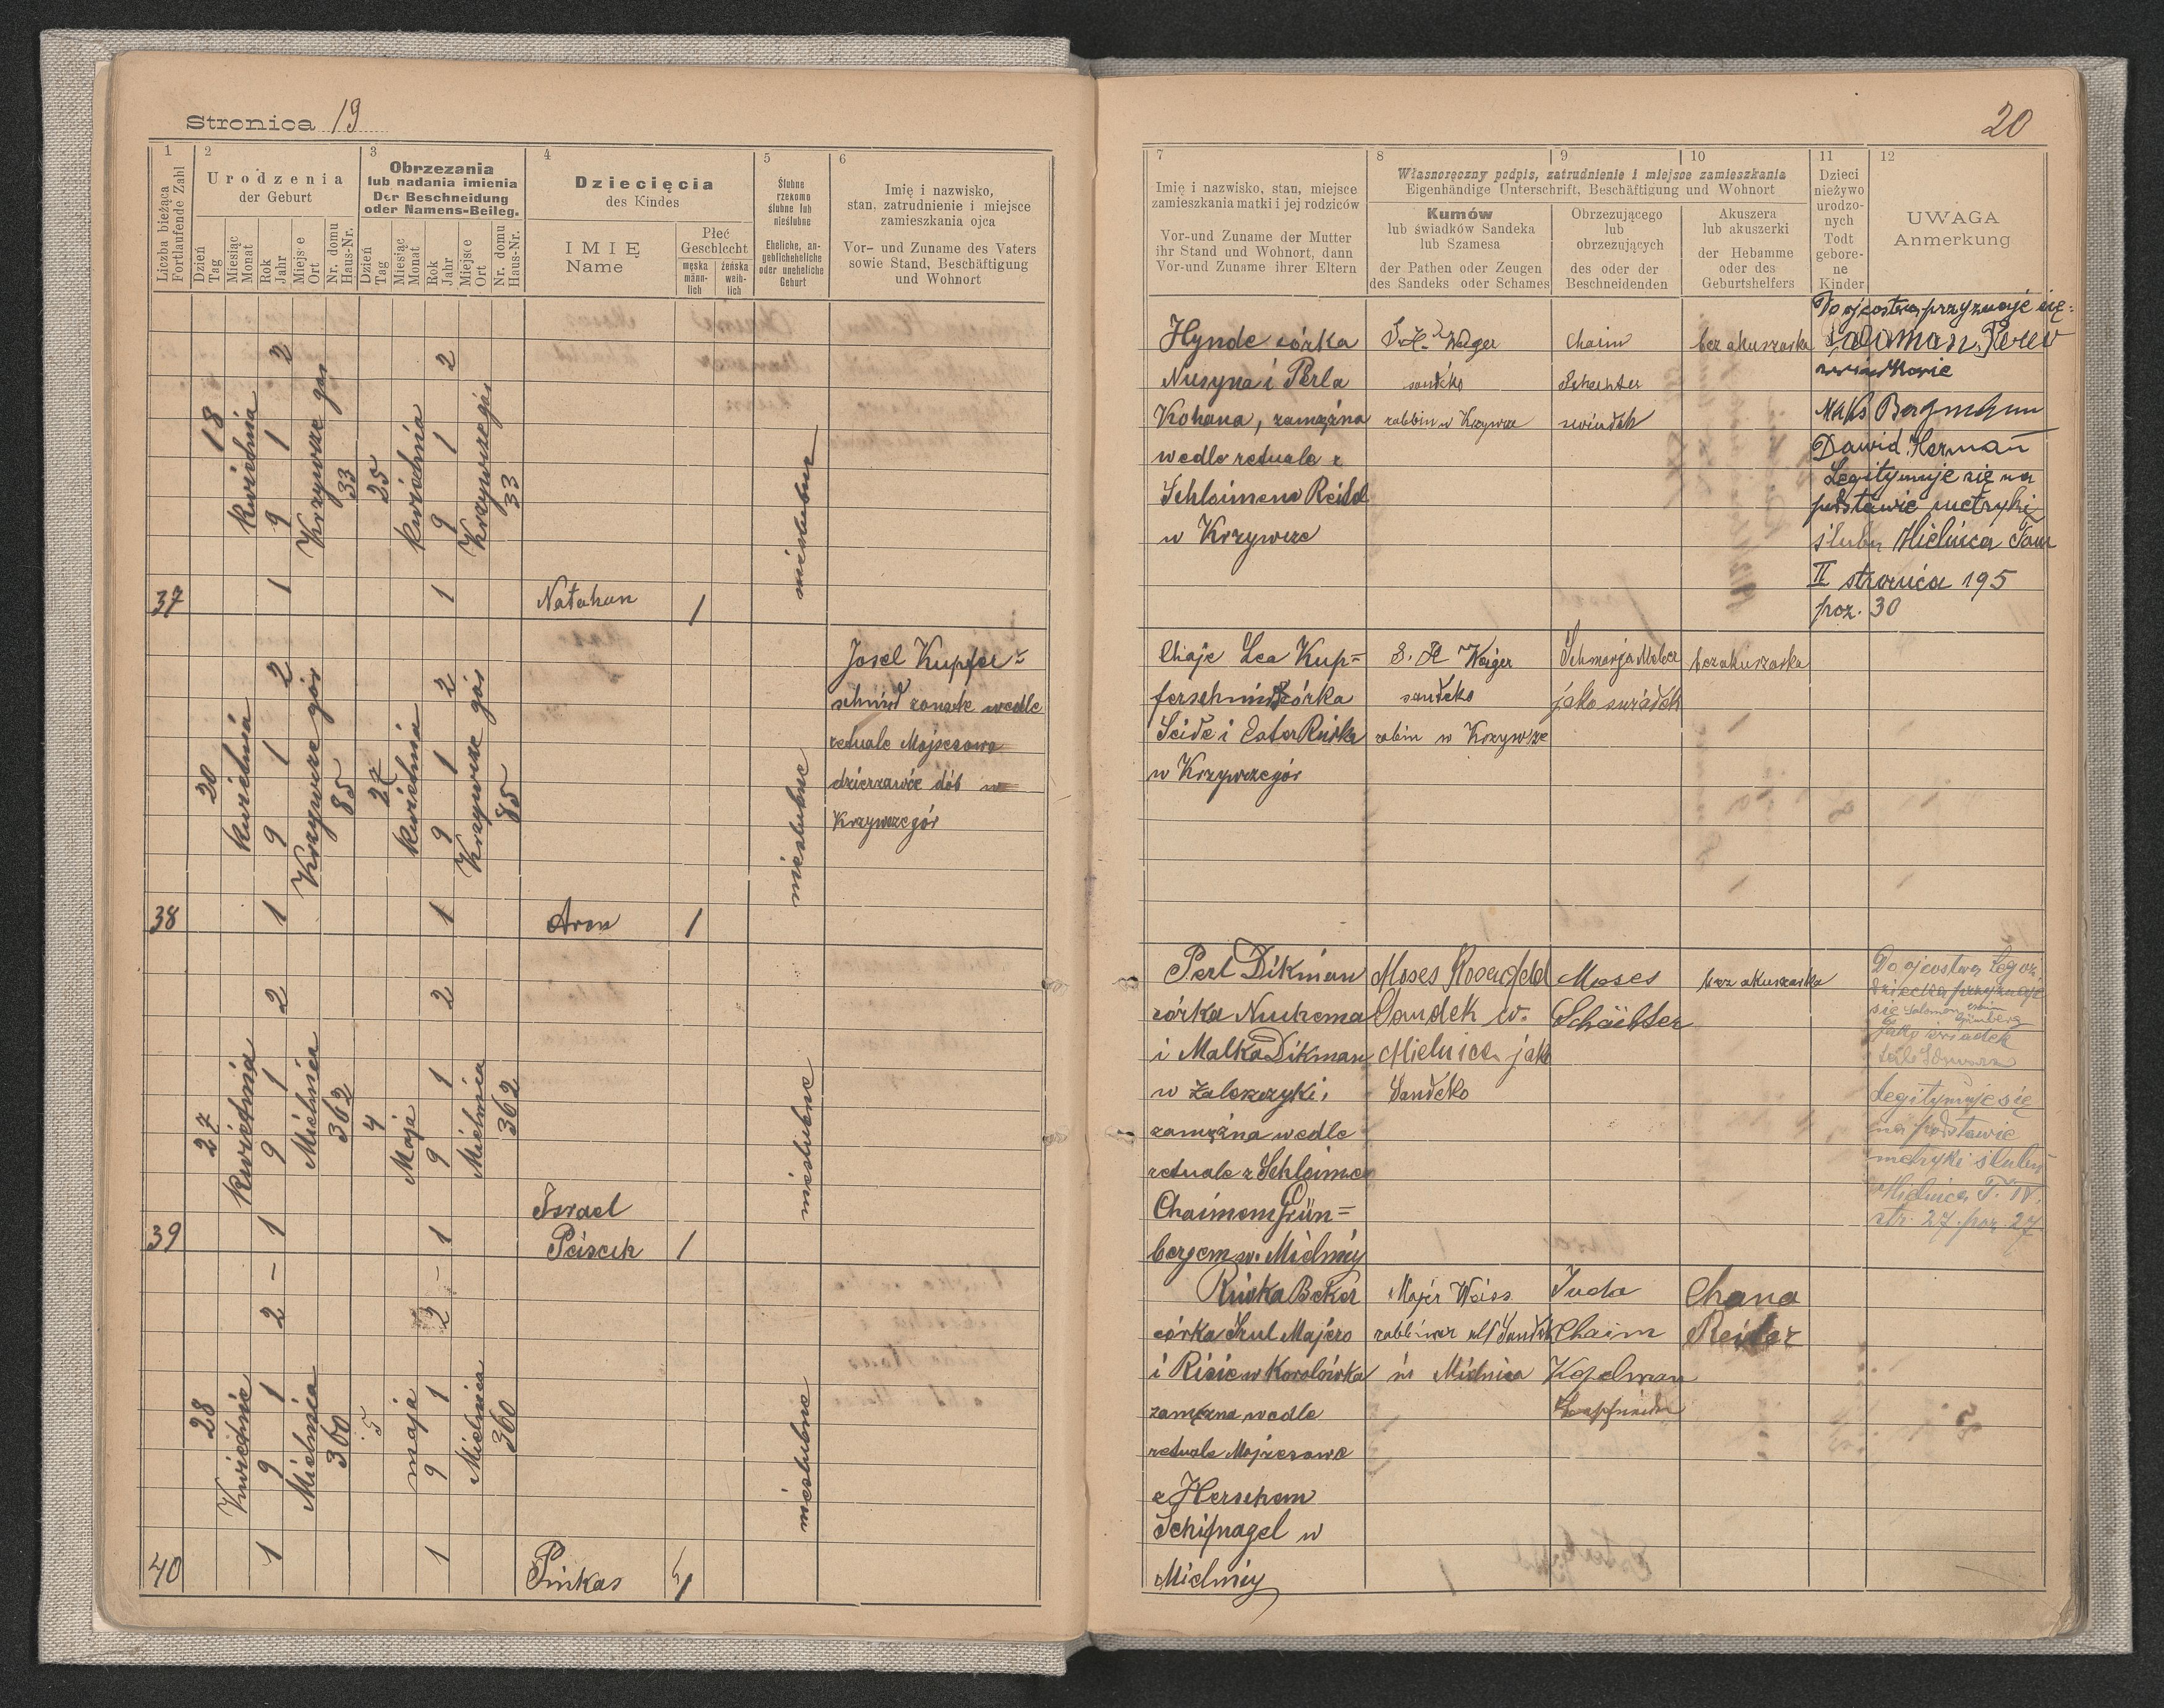 Stronica 19
1
Liczba bieżąca
Fortlaufende Zahl
2
Urodzenia
der Geburt
Dzień
Tag
Miesiąc
Monat
Rok
Jahr
Miejsce
Ort
Nr. domu
Haus-Nr.
3
Obrzezania
lub nadania imienia
Der Beschneidung
oder Namens-Beileg.
Dzień
Tag
Miesiąc
Monat
Rok
Jahr
Miejsce
Ort
Nr. domu
Haus-Nr.
4
Dziecięcia
des Kindes
IMIĘ
Name
Płeć
Geschlecht
męska
männ-
lich
żeńska
weib-
lich
5
Ślubne
rzekomo
ślubne lub
nieślubne
Eheliche, an-
geblicheheliche
oder uneheliche
Geburt
6
Imię i nazwisko,
stan, zatrudnienie i miejsce
zamieszkania ojca
Vor- und Zuname des Vaters
sowie Stand, Beschäftigung
und Wohnort
37
18
kwietnia
1 9 1 2
Krzywcze gór
33
25
kwietnia
1 9 1 2
Krzywcze gór
33
Natahan
1
nieslubne
38
20
kwietnia
1 9 1 2
Krzywcze gór
85
27
kwietnia
1 9 1 2
Krzywcze gór
85
Aron
1
nieslubne
Josel Kupfer=
schmid zonate wedle
retuale Mojzeszowe
dzierzawce dób w
Krzywczegór
39
27
kwietnia
1 9 1 2
Mielnica
362
4
Maja
1 9 1 2
Mielnica
362
Israel
Peisech
1
nieslubne
40
28
Kwietnie
1 9 1 2 -
Mielnica
360
5
maja
1 9 1 2 -
Mielnica
360
Pinkas
1
nieslubne
20
7
Imię i nazwisko, stan, miejsce
zamieszkania matki i jej rodziców
Vor-und Zuname der Mutter
ihr Stand und Wohnort, dann
Vor-und Zuname ihrer Eltern
8
9
10
Własnoręczny podpis, zatrudnienie i miejsce zamieszkania
Eigenhändige Unterschrift, Beschäftigung und Wohnort
Kumów
lub świadków Sandeka
lub Szamesa
der Pathen oder Zeugen
des Sandeks oder Schames
Obrzezującego
lub
obrzezujących
des oder der
Beschneidenden
Akuszera
lub akuszerki
der Hebamme
oder des
Geburtshelfers
11
Dzieci
nieżywo
urodzo-
nych
Todt
gebore-
ne
Kinder
12
UWAGA
Anmerkung
Hynde córka
Nusyna i Perla
Kohana, zamężna
wedle retuale z
Schloimem Reitel
w Krzywcze
S. H. Weiger
sandeko
rabbin w Krzywcze
Chaim
Schechter
swiadek
bez akuszarka
Do ojcostwa przyznaje się:
świadkowie
Maks Bergmann
Dawid Herman
Legitymuje się na
podstawie metryki
ślubu Mielnica Tom
II stronica 195
poz. 30
Chaje Lea Kup=
ferschmid córka
Seide i Ester Riwka
w Krzywczegór
S. H Weiger
sandeko
rabin w Krzywcze
Schmarja Meber
jako swiadek
bez akuszarka
Perl Dikman
córka Nuchema
i Malka Dikman
w Zaleszczyki,
zamężna wedle
retuale z Schloime
Chaimem Grün=
bergem w. Mielnicy
Moses Rosenfeld
Sandek w.
Mielnica jako
Sandeko
Moses
Schächter
bez akuszarka
Do ojcostwa tegoż
dziecka przyznaje
się Salomon Chaim
Grünberg
jako świadek
Legitymuje się
na podstawie
metryki ślubu
Mielnica T. IV.
str. 27. poz. 27
Riwka Beker
córka Srul Majera
i Risie w Korolówka
zamężna wedle
retuale Mojzeszowe
z Herschem
Schifnagel w
Mielnicy
Majer Weiss
rabbiner als Sandek
in Mielnica
Juda
Chaim
Kopelman
Chana
Reiter